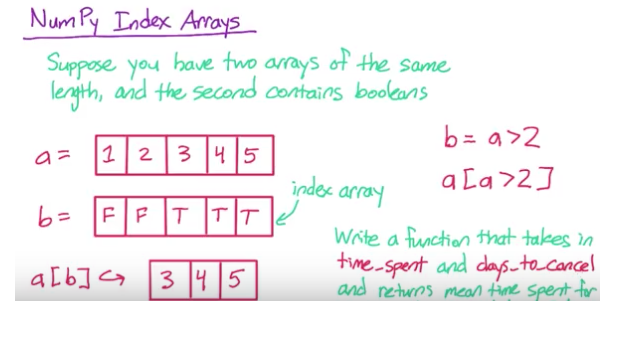 NumPy Index Arrays
Suppose you have two arrays of the same
length, and the second contains booleans
a = 1 2 3 4 5
b = F F T T T
index array
a[b] ↪ 3 4 5
b = a>2
a[a>2]
Write a function that takes in
time_spent and days_to_cancel
and returns mean time spent for